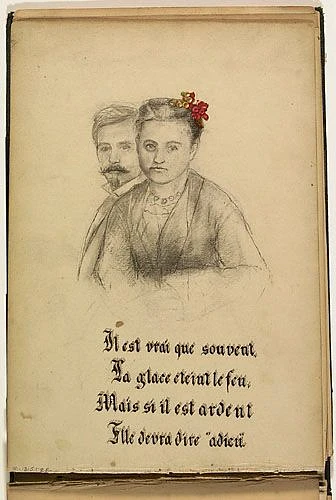 Il est vrai que souvent,
La glace eteint le feu,
Mais si il est ardent
Elle devra dire "adieu".